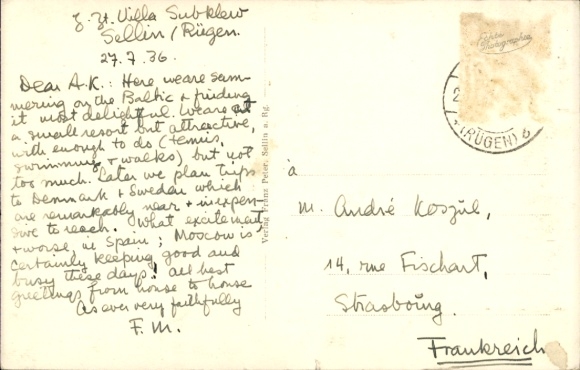 z. Zt. Villa Subklew
Sellin / Rügen.
27.7.36.
Dear A.K.: Here we are sum-
mering on the Baltic + finding
it most delightful. We are at
a small resort but attractive,
with enough to do (tennis,
swimming + walks) but not
too much. Later we plan trips
to Denmark + Sweden which
are remarkably near + inexpen-
sive to reach. What excitement,
+ worse, in Spain; Moscow is
certainly keeping good and
busy these days! All best
greetings from house to house
As ever very faithfully
F.M.
Verlag Franz Peter, Sellin a. Rg.
Echte
Photographie
(RÜGEN) b
à
M. André Koszul,
14, rue Fischart,
Strasbourg.
Frankreich